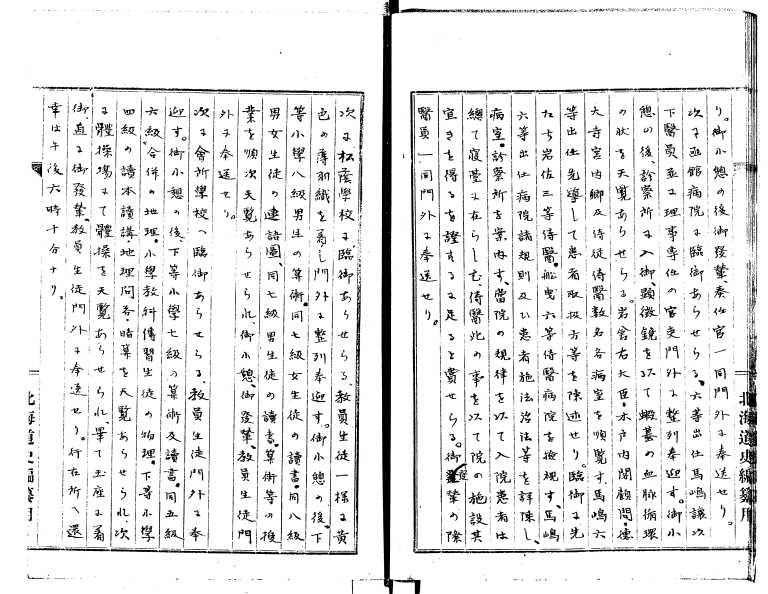 り。御小憩の後御發輦奏任官一同門外に奉送せり。
次に函館病院に臨御あらせらる。六等出仕馬嶋譲次
下醫員並に理事專任の官吏門外に整列奉迎す。御小
憩の後、診察所に入御、顕微鏡を以て蝦蟇の血脈循環
の状を天覧あらせらる。岩倉右大臣・木戸内閣顧問・德
大寺宮内卿及侍従侍醫数名各病室を順覧す。馬嶋六
等出仕先導して患者取扱方等を陳述せり。臨御に先
たち岩佐三等侍醫・船曳六等侍醫病院を檢視す。馬嶋
六等出仕病院諸規則及ひ患者施法治法等を詳陳し、
病室・診察所を案内す。當院の規律を以て入院患者は
總て寝臺に在らしむ、侍醫此の事を以て院の施設其
宜きを得るを證するに足ると賞せらる。御發輦の際
醫員一同門外に奉送せり。
次に松蔭學校に臨御あらせらる、教員生徒一様に黄
色の薄羽織を着し門外に整列奉迎す。御小憩の後、下
等小學八級男生の算術・同七級女生徒の讀書・同八級
男女生徒の連語圖、同七級男生徒の讀書・算術等の授
業を順次天覧あらせられ、御小憩、御發輦、教員生徒門
外に奉送せり。
次に會所學校へ臨御あらせらる、教員生徒門外に奉
迎す。御小憩の後、下等小學七級の算術及讀書・同五級
六級合併の地理・小學教科傳習生徒の物理・下等小學
四級の讀本讀講・地理問答・暗算を天覧あらせられ、次
に體操場にて體操を天覧あらせられ、畢て玉座に着
御、直に御發輦、教員生徒門外に奉送せり。行在所へ還
幸は午後六時十分なり。
北海道史編纂用
北海道史編纂用